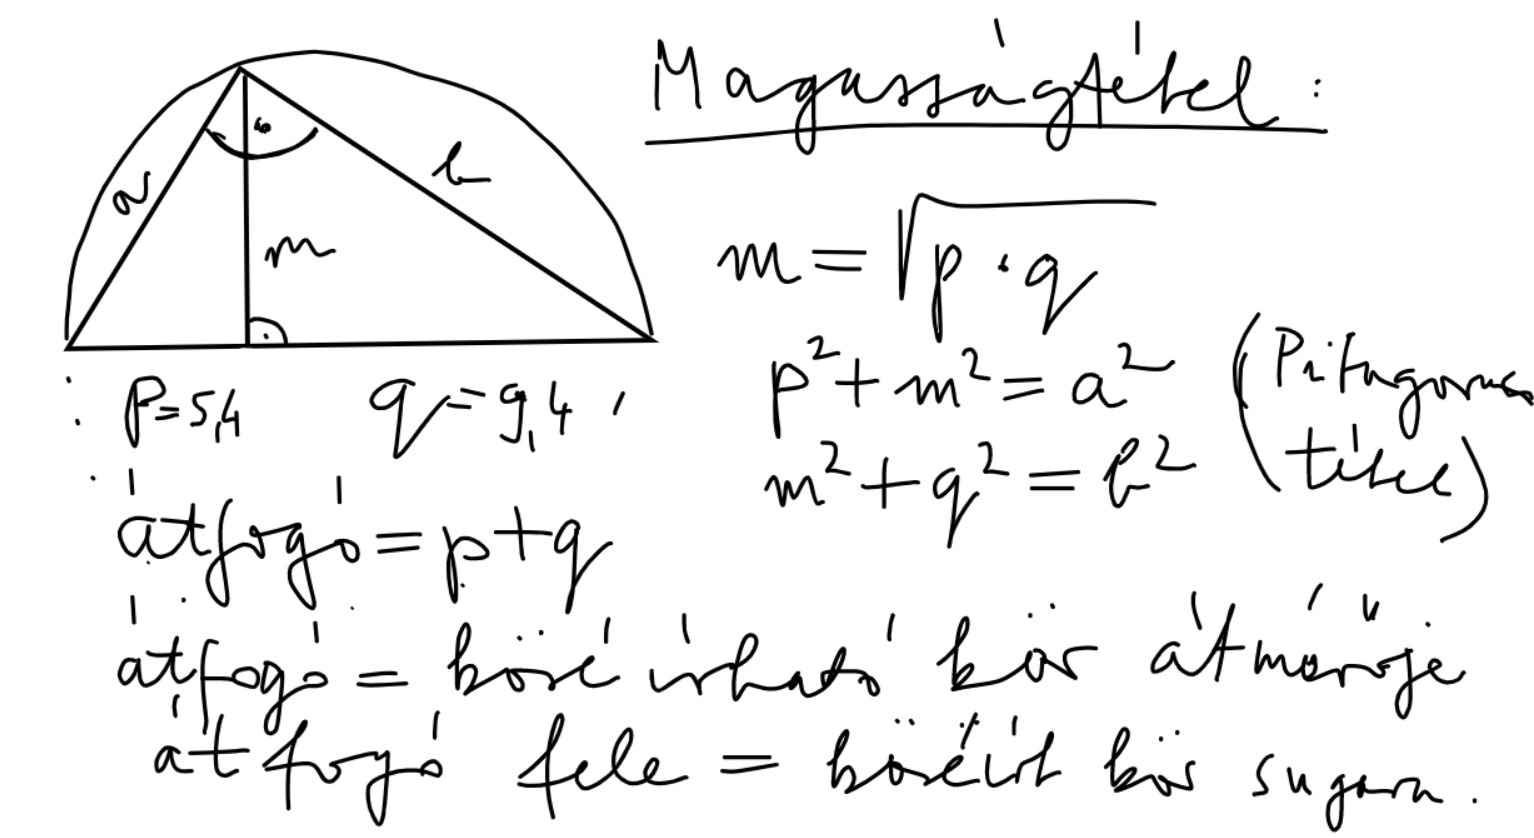 Magasságtétel:
a
b
m
m = √p · q
p² + m² = a² (Pitagoras
m² + q² = b² tétel)
p = 5,4 q = 9,4
átfogó = p + q
átfogó = köré írható kör átmérője
átfogó fele = köréírt kör sugara.